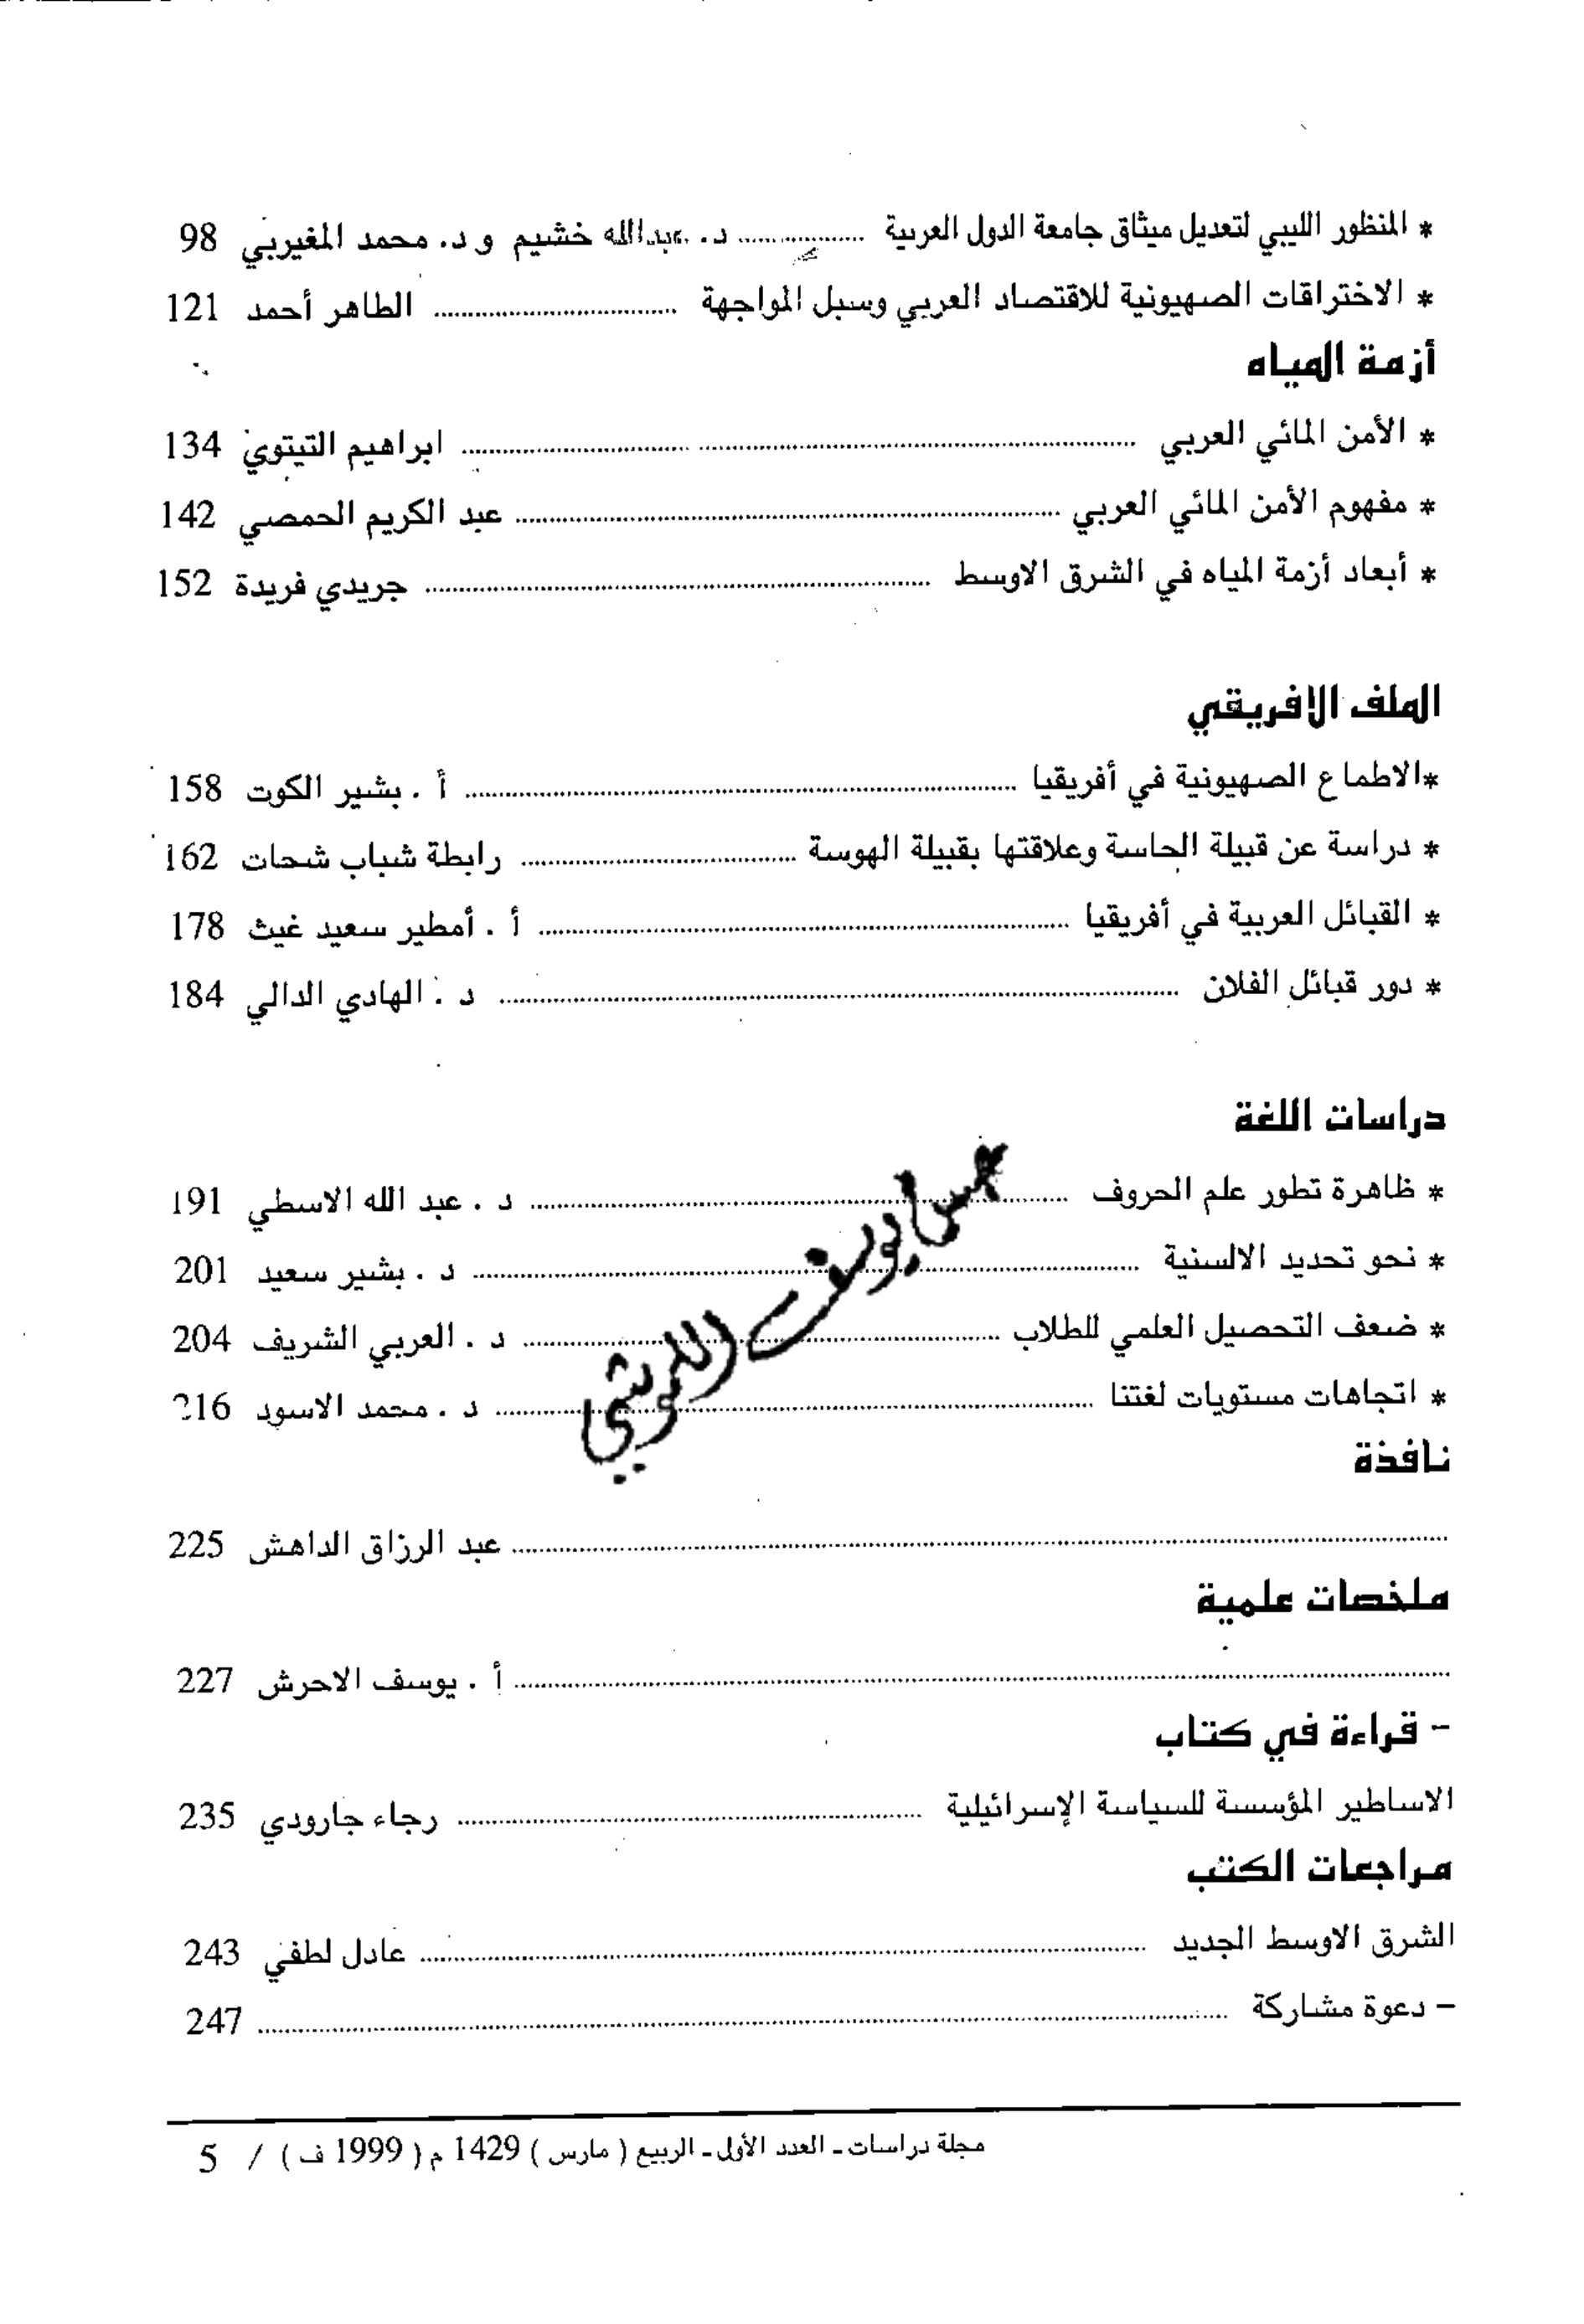 * المنظور الليبي لتعديل ميثاق جامعة الدول العربية ................ د. عبدالله خشيم و د. محمد المغيربي 98
* الاختراقات الصهيونية للاقتصاد العربي وسبل المواجهة ................ الطاهر أحمد 121
أزمة المياه
* الأمن المائي العربي ................ ابراهيم التيتوي 134
* مفهوم الأمن المائي العربي ................ عبد الكريم الحمصي 142
* أبعاد أزمة المياه في الشرق الاوسط ................ جريدي فريدة 152
الملف الإفريقي
*الاطماع الصهيونية في أفريقيا ................ أ . بشير الكوت 158
* دراسة عن قبيلة الحاسة وعلاقتها بقبيلة الهوسة ................ رابطة شباب شحات 162
* القبائل العربية في أفريقيا ................ أ . أمطير سعيد غيث 178
* دور قبائل الفلان ................ د . الهادي الدالي 184
دراسات اللغة
* ظاهرة تطور علم الحروف ................ د . عبد الله الاسطي 191
* نحو تحديد الالسنية ................ د . بشير سعيد 201
* ضعف التحصيل العلمي للطلاب ................ د . العربي الشريف 204
* اتجاهات مستويات لغتنا ................ د . محمد الاسود 216
نافذة
................ عبد الرزاق الداهش 225
ملخصات علمية
................ أ . يوسف الاحرش 227
- قراءة في كتاب
الاساطير المؤسسة للسياسة الإسرائيلية ................ رجاء جارودي 235
مراجعات الكتب
الشرق الاوسط الجديد ................ عادل لطفي 243
- دعوة مشاركة ................ 247
مجلة دراسات - العدد الأول - الربيع ( مارس ) 1429 م ( 1999 ف ) / 5